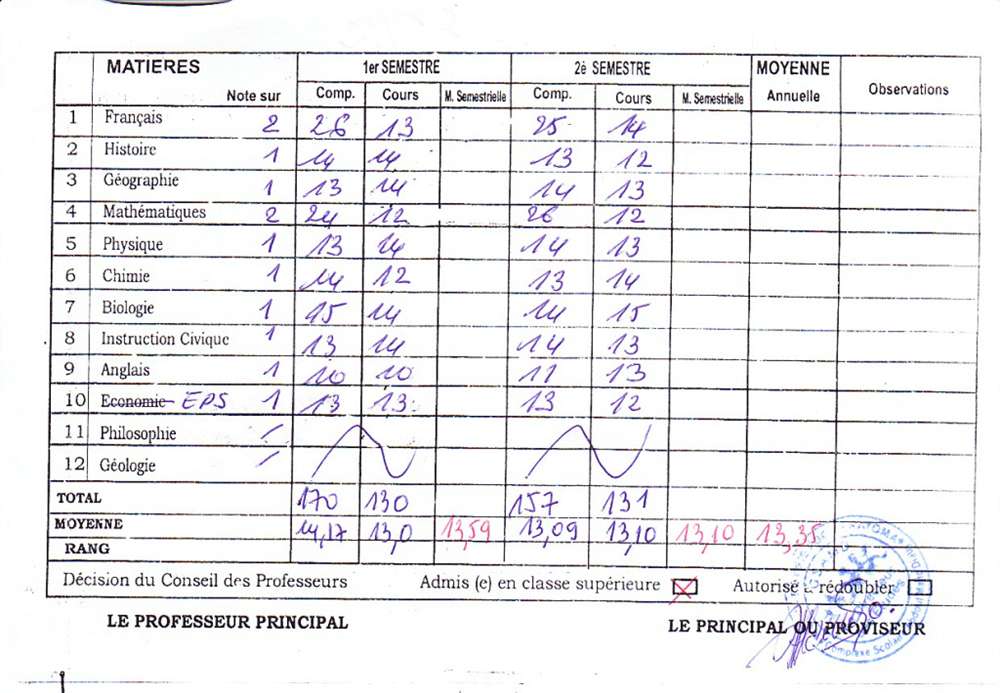 MATIERES 1er SEMESTRE 2é SEMESTRE MOYENNE Observations
Note sur Comp. Cours M. Semestrielle Comp. Cours M. Semestrielle Annuelle
1 Français 2 26 13 25 14
2 Histoire 1 14 14 13 12
3 Géographie 1 13 14 14 13
4 Mathématiques 2 24 12 26 12
5 Physique 1 13 14 14 13
6 Chimie 1 14 12 13 14
7 Biologie 1 15 14 14 15
8 Instruction Civique 1 13 14 14 13
9 Anglais 1 10 10 11 13
10 Economie EPS 1 13 13 13 12
11 Philosophie
12 Géologie
TOTAL 170 130 157 131
MOYENNE 14,17 13,0 13,59 13,09 13,10 13,10 13,35
RANG
Décision du Conseil des Professeurs Admis (e) en classe supérieure Autorisé à rédoubler
LE PROFESSEUR PRINCIPAL LE PRINCIPAL OU PROVISEUR